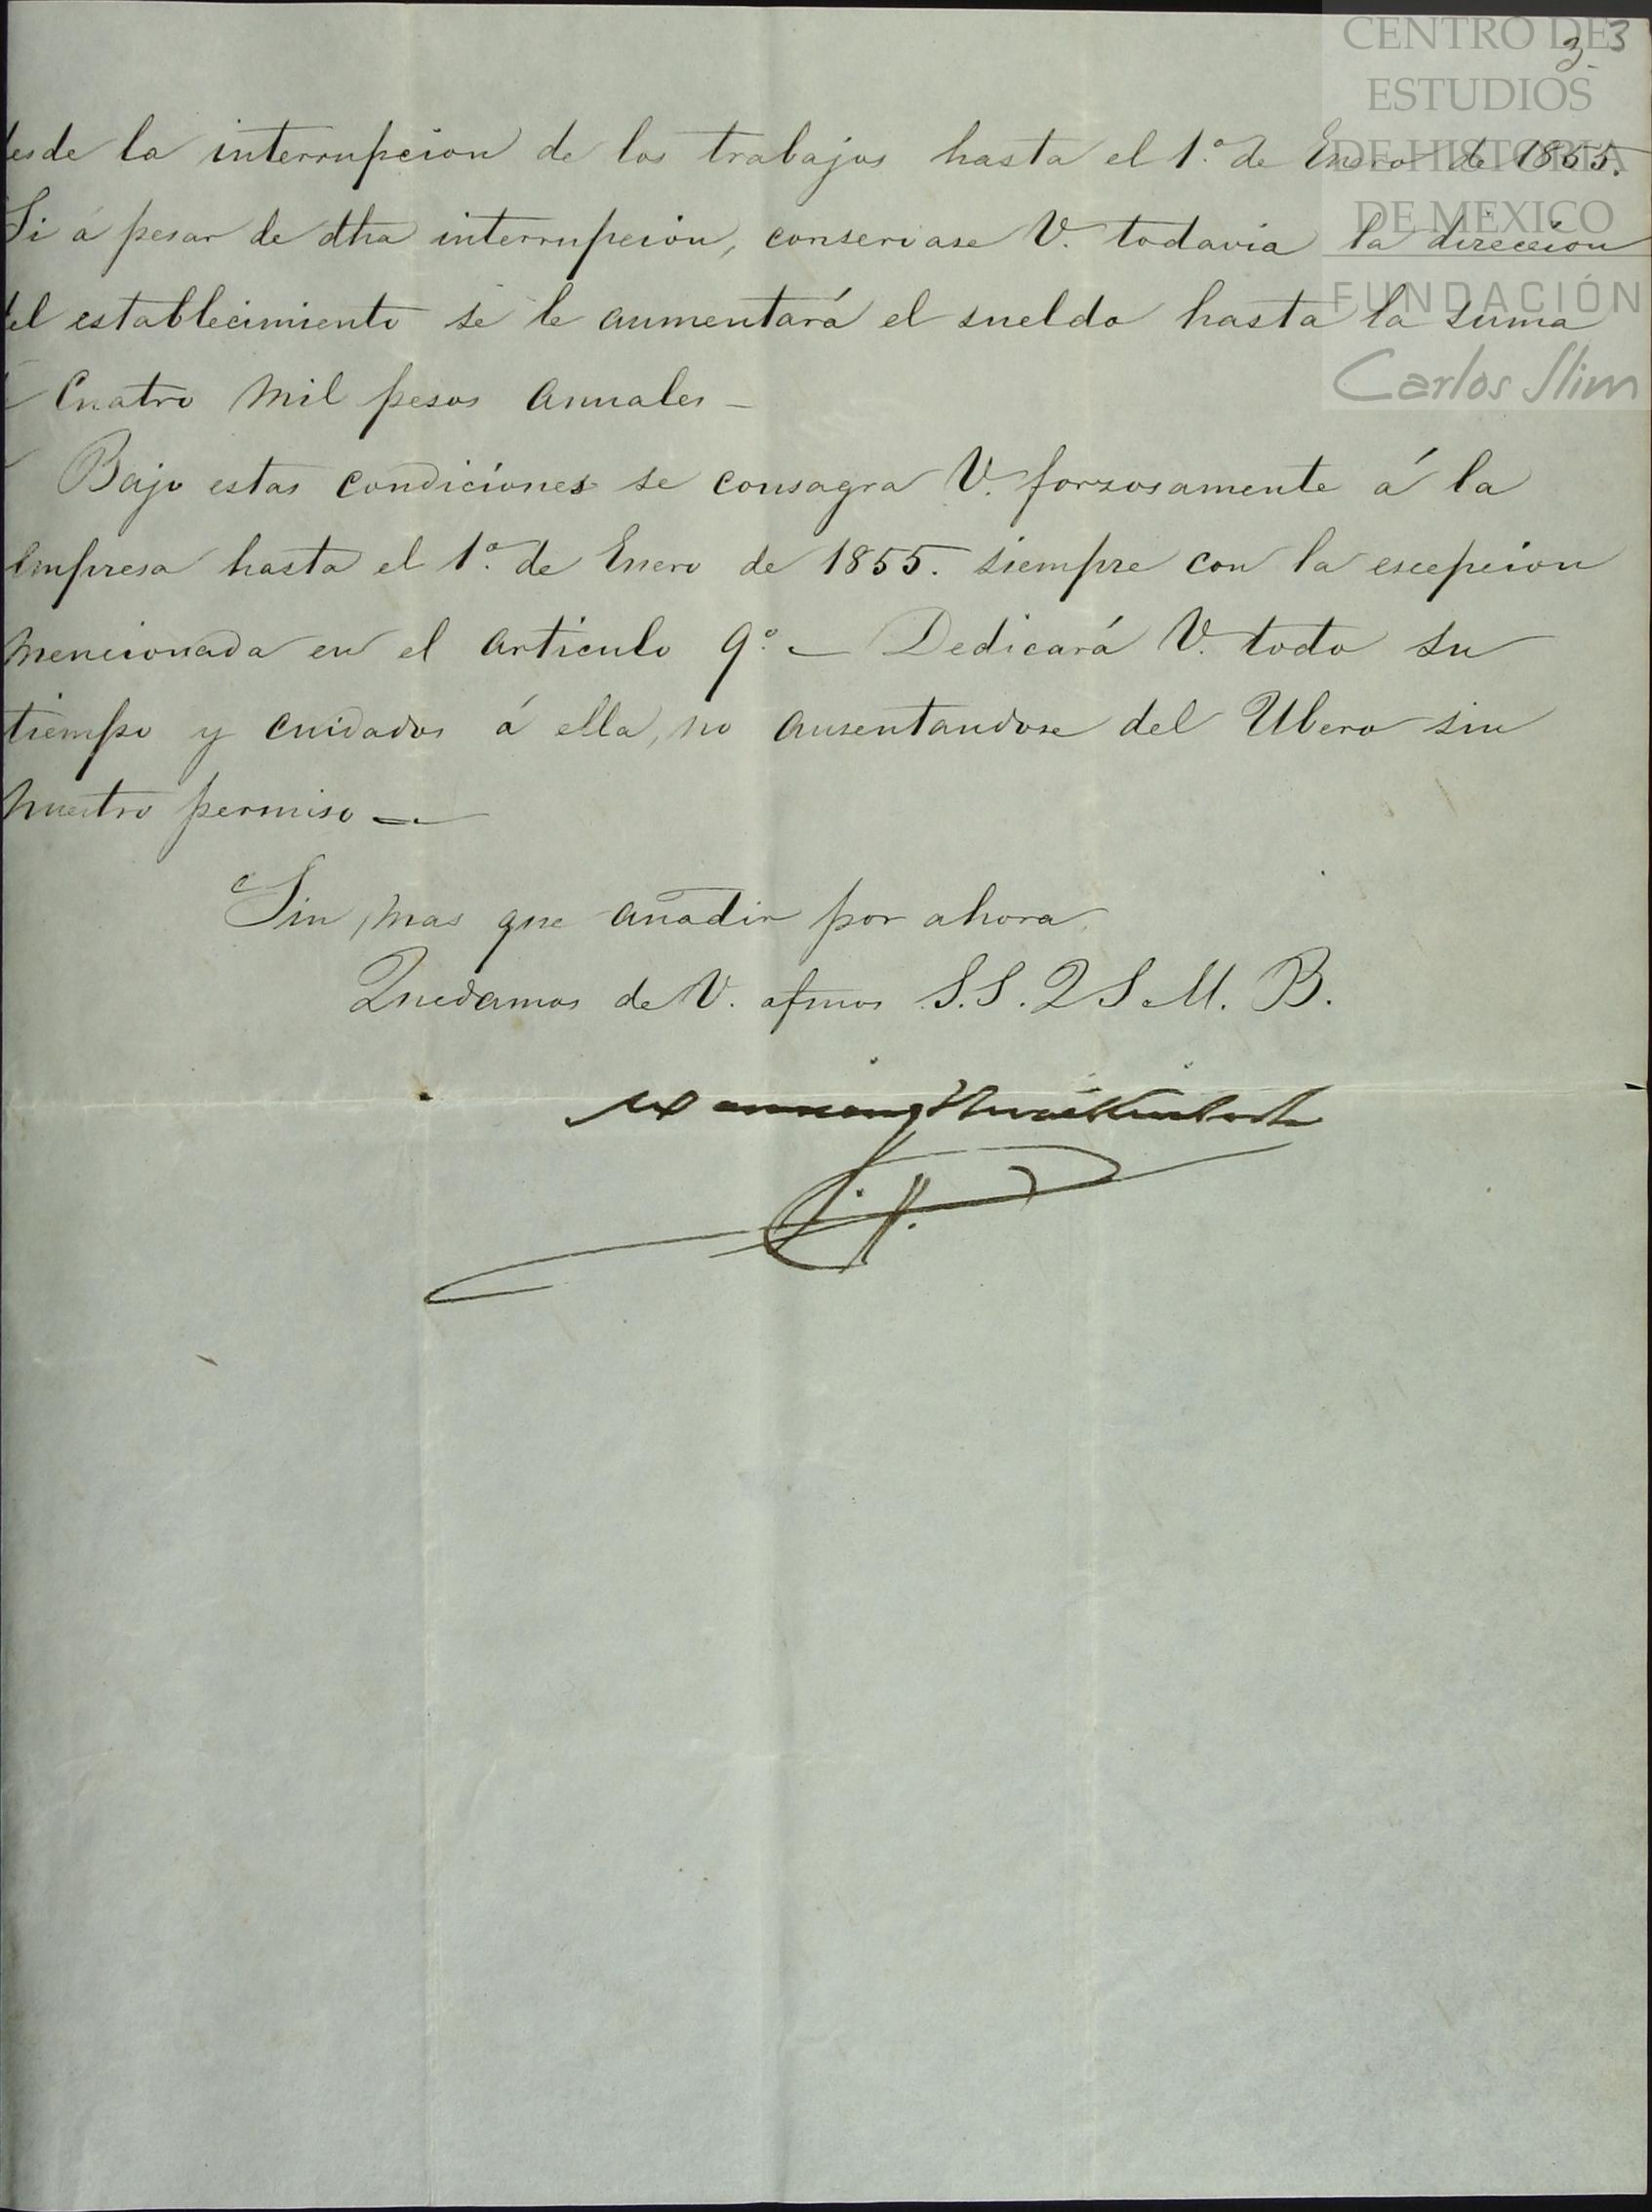 CENTRO DE
ESTUDIOS
DE HISTORIA
DE MÉXICO
FUNDACIÓN
Carlos Slim
3
3
desde la interrupcion de los trabajos hasta el 1.º de Enero de 1855.
Si á pesar de dha interrupcion, conservase V. todavia la direccion
del establecimiento se le aumentará el sueldo hasta la suma
Cuatro mil pesos annales —
Bajo estas condiciones se consagra V. forzosamente á la
empresa hasta el 1.º de Enero de 1855. siempre con la escepcion
mencionada en el articulo 9.º — Dedicará V. todo su
tiempo y cuidados á ella, no ausentandose del Ubero sin
nuestro permiso —
Sin mas que añadir por ahora,
Quedamos de V. afmos S.S. Q S M. B.
Manning Mackintosh